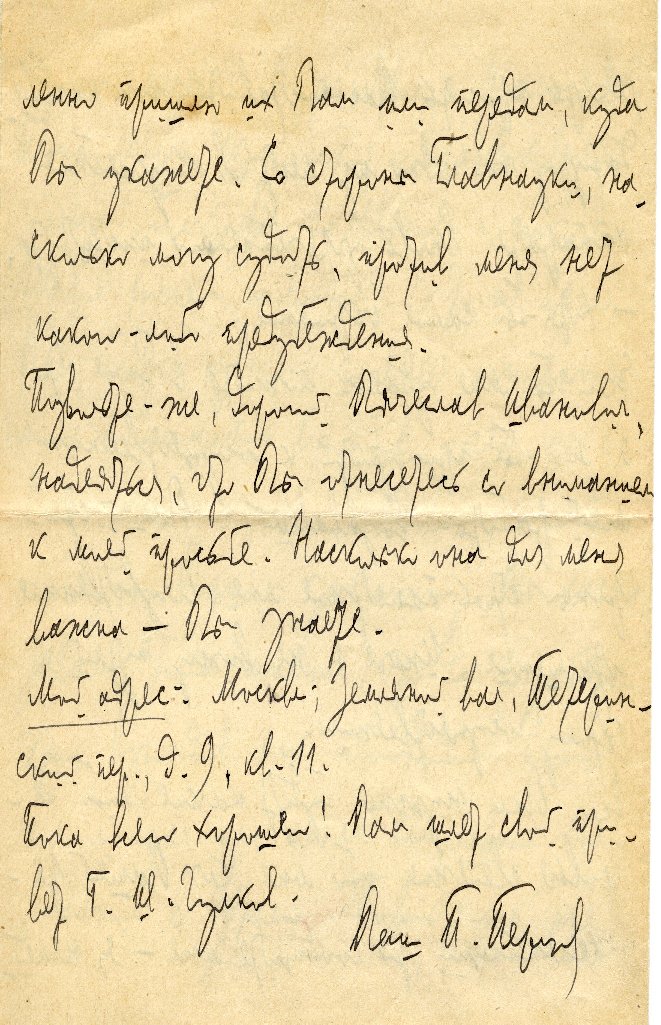 ленно пришлю их Вам или передам, куда
Вы укажете. Со стороны Главнауки, на-
сколько могу судить, против меня нет
какого-либо предубеждения.
Позвольте-же, дорогой Вячеслав Иванович,
надеяться, что Вы отнесетесь со вниманием
к моей просьбе. Насколько она для меня
важна — Вы знаете.
Мой адрес: Москва; Земляной вал,
ский пер., д. 9, кв. 11.
Пока всего хорошего! Вам шлет свой при-
вет Г. И. Чулков.
Ваш П. Перцов